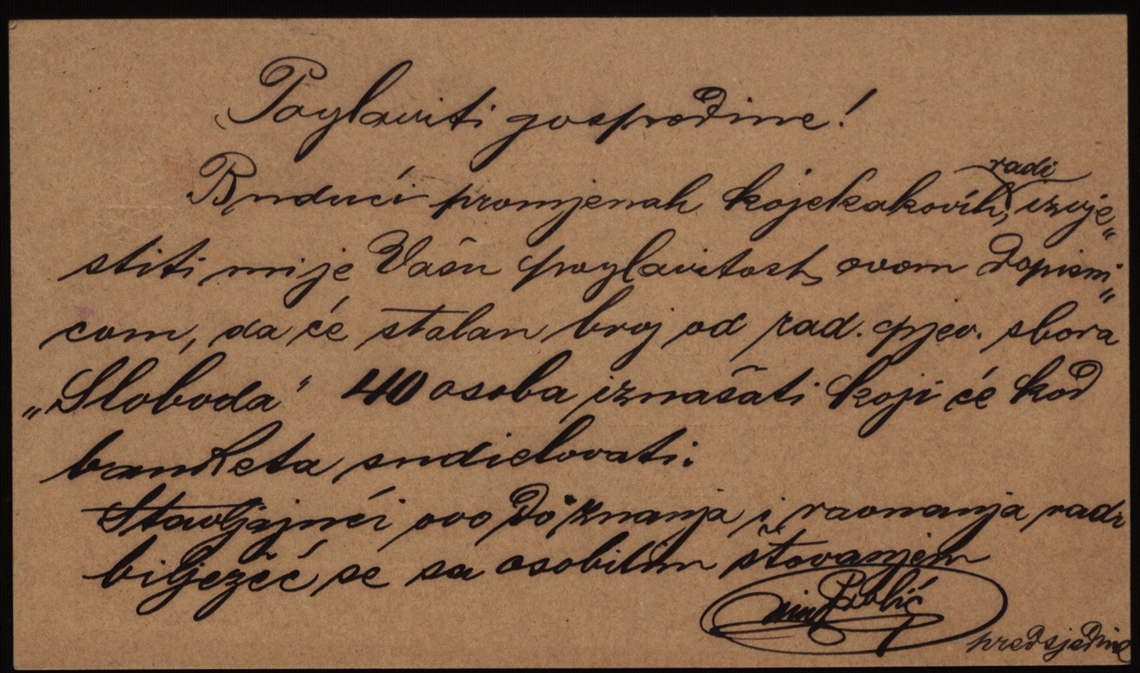 Poglaviti gospodine!
radi
Budući promjenah kojekakovih, izvje„
stiti mi je Vašu poglavitost, ovom dopisni„
com, da će stalan broj od rad. pjev. sbora
„Sloboda" 40 osoba iznašati koji će kod
banketa sudielovati.
Stavljajući ovo do znanja i ravnanja radi
bilježeć se sa osobitim štovanjem
Pavlić
predsjednik